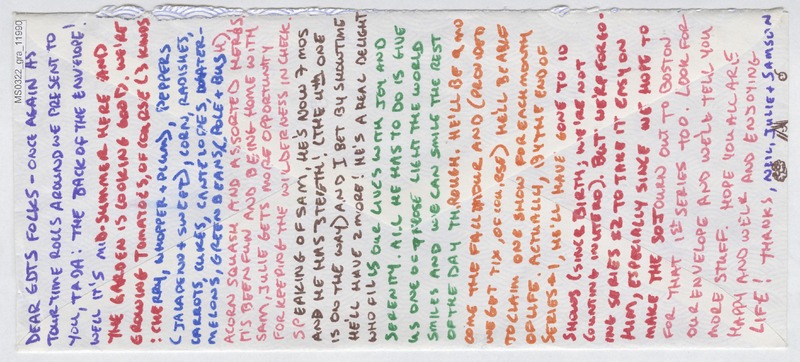 MS0322_gra_11990
DEAR GDTS FOLKS - ONCE AGAIN AS
TOUR-TIME ROLLS AROUND WE PRESENT TO
YOU, TADA: THE BACK OF THE ENVELOPE!
WELL IT'S MID-SUMMER HERE AND
THE GARDEN IS LOOKING GOOD, WE'RE
GROWING TOMATOES, OF COURSE ( KINDS
: CHERRY, WHOPPER + PLUM), PEPPERS
(JALAPENO + SWEET), CORN, RADISHES,
CARROTS, CUKES, CANTELOPES, WATER-
MELONS, GREEN BEANS (POLE + BUSH)
ACORN SQUASH AND ASSORTED HERBS
IT'S BEEN FUN AND BEING HOME WITH
SAM, JULIE GETS MORE OPPORTUNITY
FOR KEEPING THE WILDERNESS IN CHECK.
SPEAKING OF SAM, HE'S NOW 7 MOS
AND HE HAS 3 TEETH! (THE 4TH ONE
IS ON THE WAY) AND I BET BY SHOWTIME
HE'LL HAVE 2 MORE! HE'S A REAL DELIGHT
WHO FILLS OUR LIVES WITH JOY AND
SERENITY. ALL HE HAS TO DO IS GIVE
US ONE OF THOSE LIGHT THE WORLD
SMILES AND WE CAN SMILE THE REST
OF THE DAY THROUGH. HE'LL BE 9 MO
COME THE FALL TOUR AND (PROVIDED
WE GET TIX, OF COURSE) HE'LL BE ABLE
TO CLAIM ONE SHOW FOR EACH MONTH
OF LIFE. ACTUALLY, BY THE END OF
SERIES #1, HE'LL HAVE GONE TO 10
SHOWS (SINCE BIRTH; WE'RE NOT
COUNTING INUTERO). BUT WE'RE FORGO-
ING SERIES #2 TO TAKE IT EASY ON
HIM, ESPECIALLY SINCE WE HOPE TO
MAKE THE SOJOURN OUT TO BOSTON
FOR THAT 1ST SERIES TOO. LOOK FOR
OUR ENVELOPE AND WE'LL TELL YOU
MORE STUFF. HOPE YOU ALL ARE
HAPPY AND WELL AND ENJOYING
LIFE! THANKS, NEIL, JULIE + SAMSON